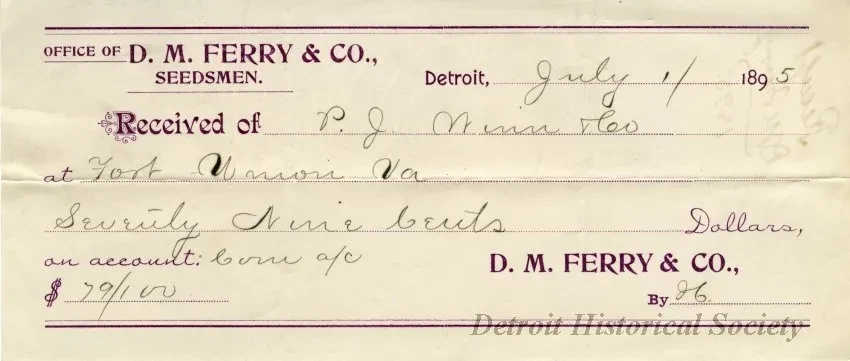 OFFICE OF D. M. FERRY & CO.,
SEEDSMEN.
Detroit, July 1/ 1895
Received of P. J. Winn & Co
at Fort Union Va
Seventy Nine Cents Dollars,
on account: Com a/c
D. M. FERRY & CO.,
$ 79/100
By H.
Detroit Historical Society